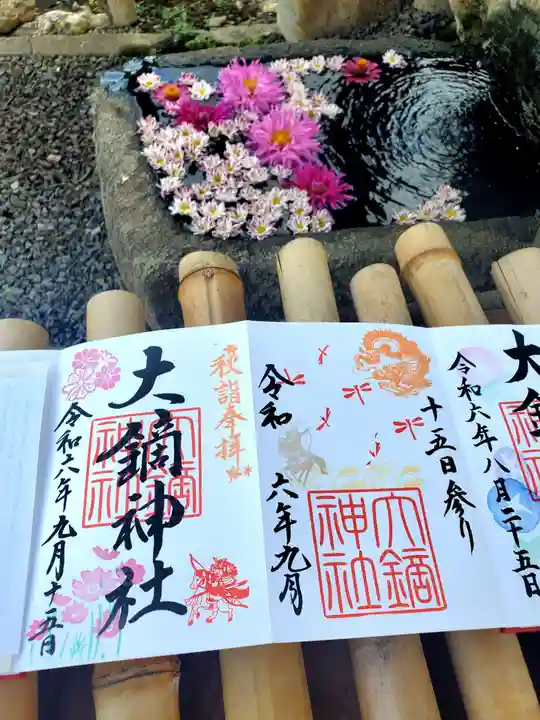 大
令和六年八月二十五日
十五日参り
令和
六年九月
大鏑神社
秋詣奉拝
大鏑神社
大鏑神社
令和六年九月十五日